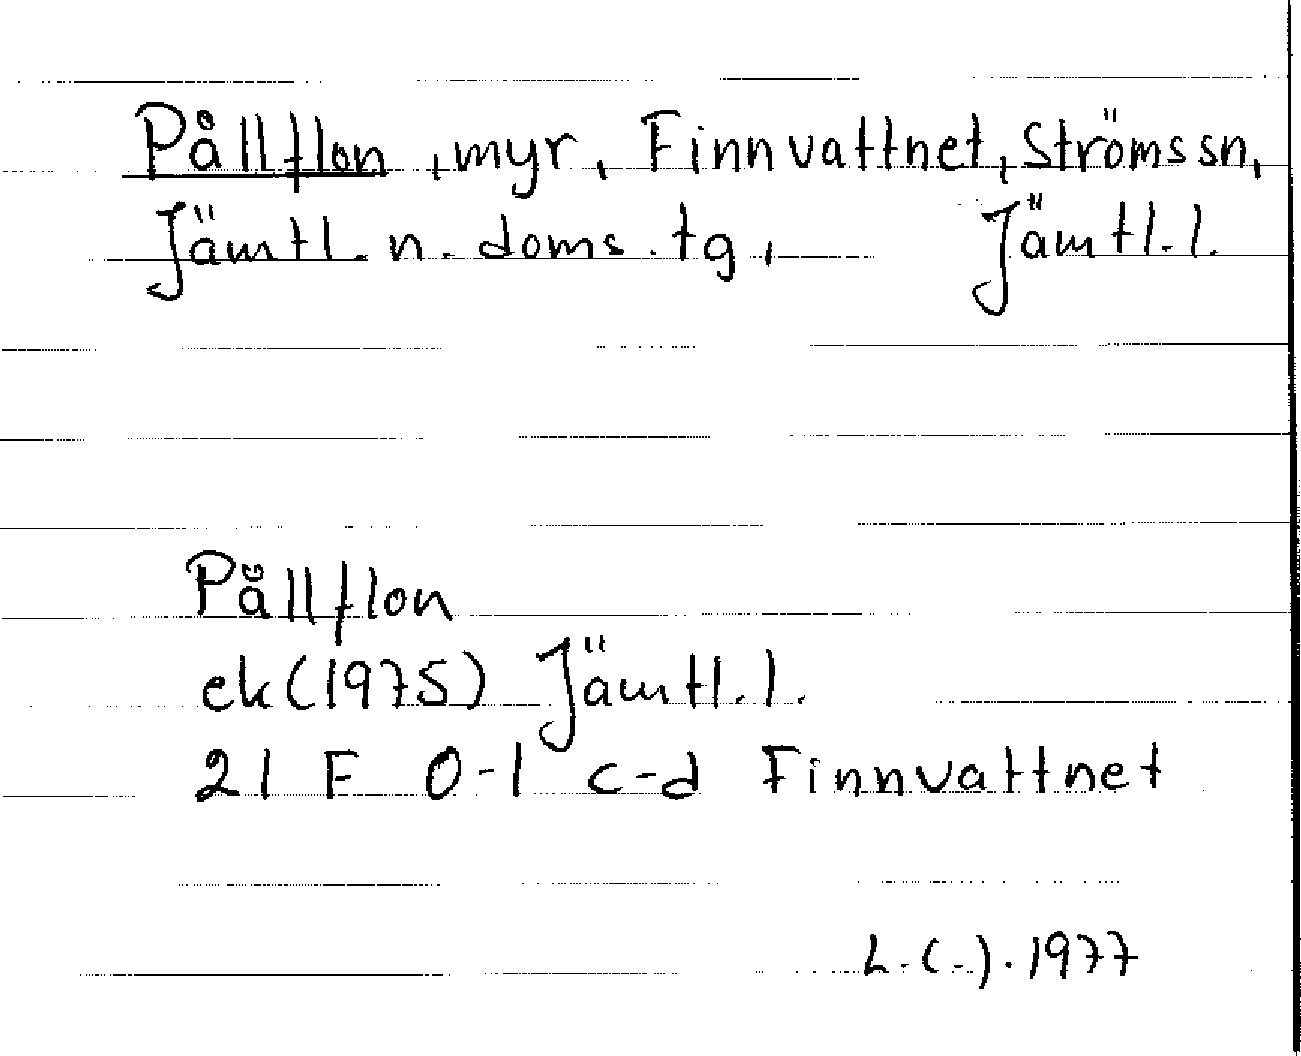 Pållflon, myr, Finnvattnet, Ströms sn,
Jämtl. n. doms. tg, Jämtl. l.
Pållflon
ek (1975) Jämtl. l.
21 F 0-1 c-d Finnvattnet
L. (-). 1977